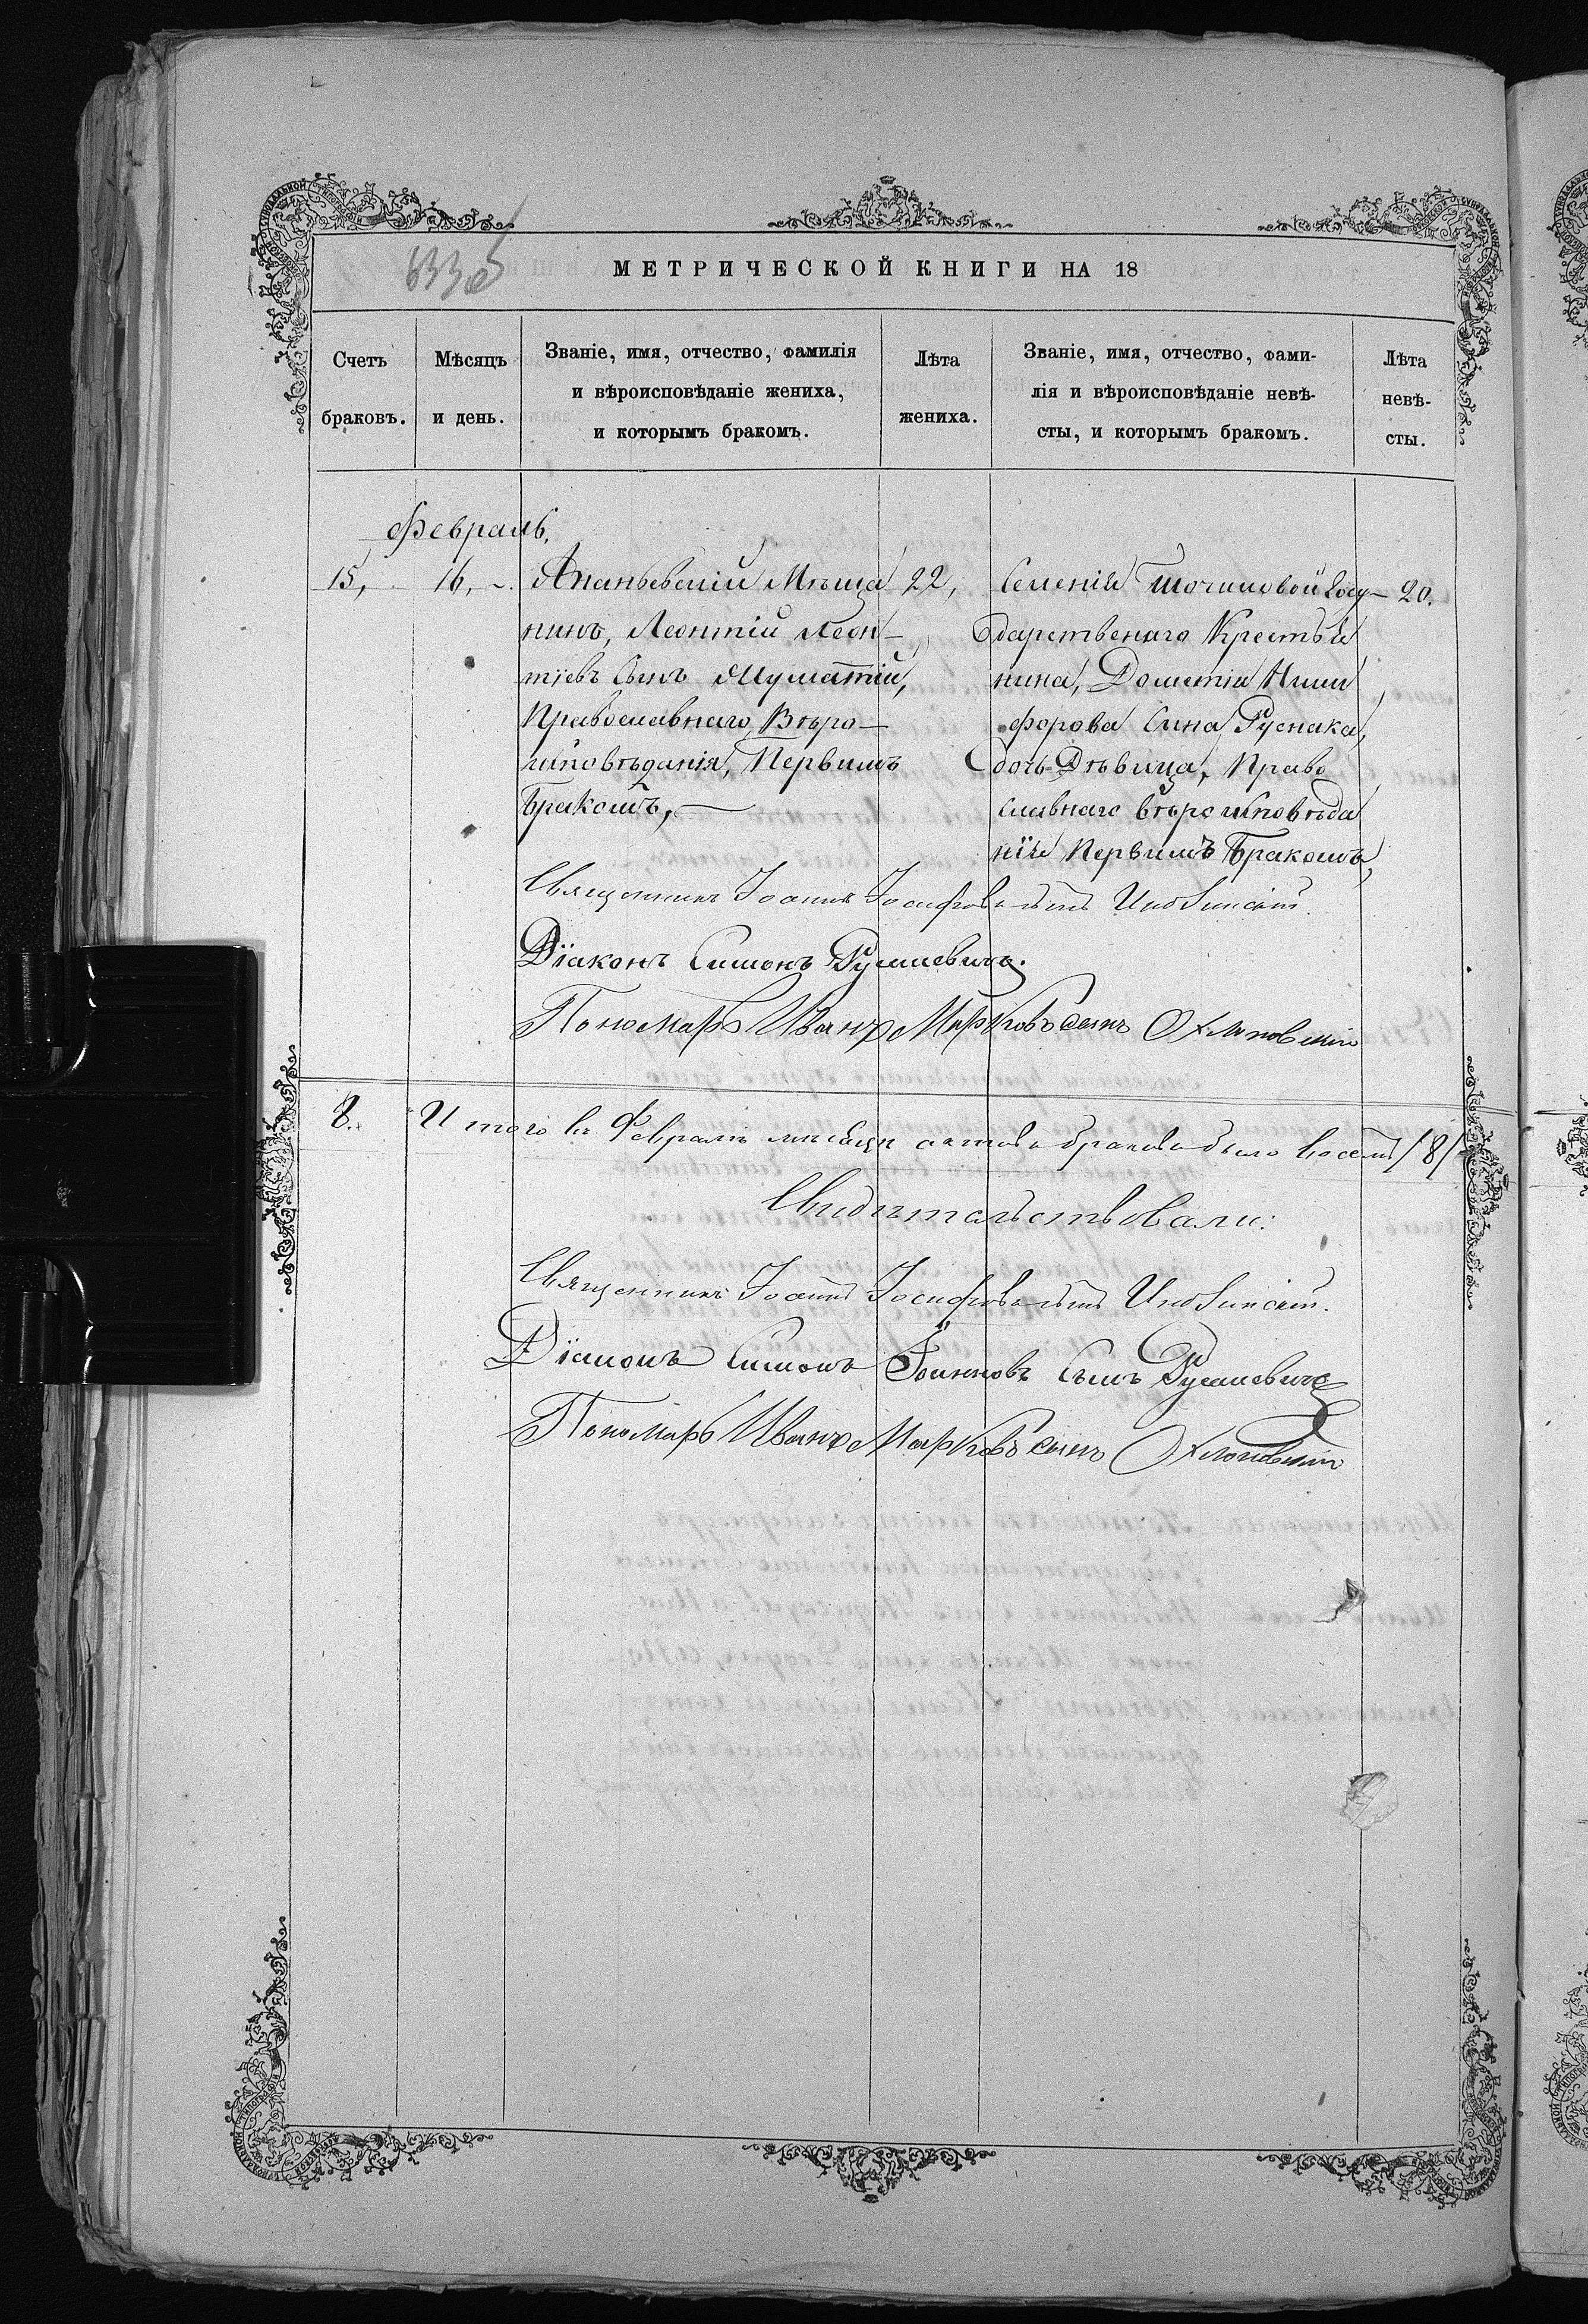 633об
МЕТРИЧЕСКОЙ КНИГИ НА 18
Счетъ браковъ.
Мѣсяцъ и день.
Званіе, имя, отчество, фамилія
и вѣроисповѣданіе жениха,
и которымъ бракомъ.
Лѣта жениха.
Званіе, имя, отчество, фами-
лія и вѣроисповѣданіе невѣ-
сты, и которымъ бракомъ.
Лѣта невѣ-
сты.
Февраль,
15, 16,
Ананьевскій Мѣща
нинъ, Леонтій Леон-
тіевъ Сынъ
Православнаго Вѣро-
исповѣданія, Первымъ
Бракомъ,
22,
Селенія Точиловой Госу-
дарственаго Крестья
нина, Дометія Ники
форова Сина Руснака,
дочь Дѣвица, Право
славнаго вѣроисповѣда
нія Первимъ Бракомъ,
20.
Священникъ Іоаннъ Іосифовъ сынъ
Діаконъ Симонъ
Пономарь Иванъ Марковъ сынъ
8. Итого въ Февралѣ мѣсяцѣ актовъ браковъ было восемь /8/
Свидѣтельствовали:
Священникъ Іоаннъ Іосифовъ сынъ
Діаконъ Симонъ Іоанновъ Сынъ
Пономарь Иванъ Марковъ сынъ